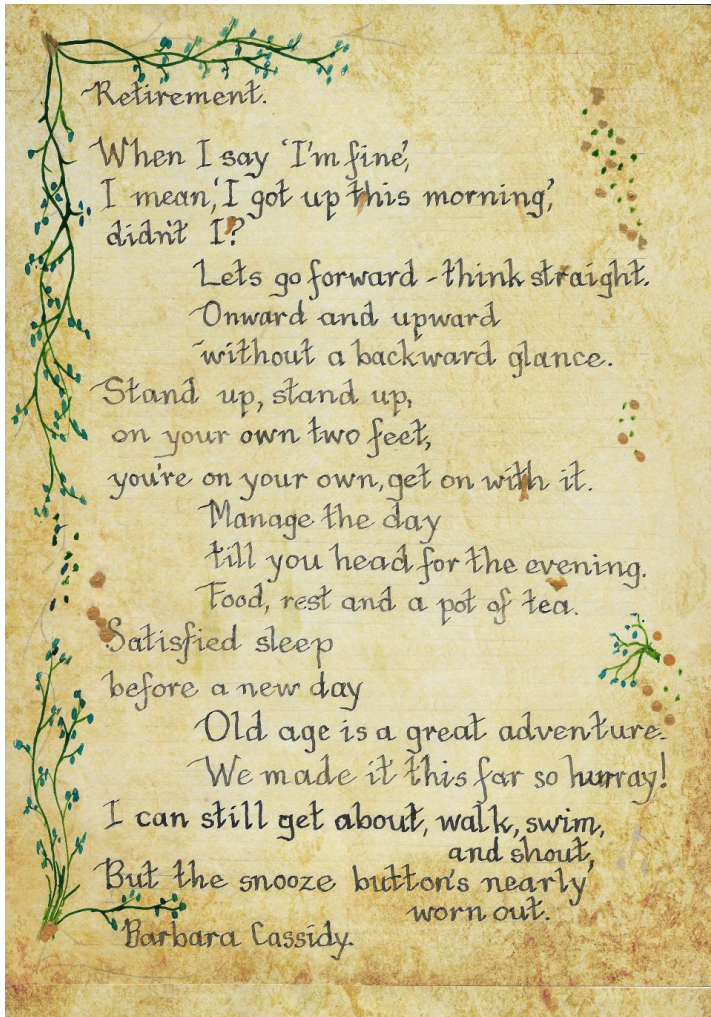 Retirement.
When I say 'I'm fine',
I mean, 'I got up this morning,'
didn't I?
Lets go forward - think straight.
Onward and upward
without a backward glance.
Stand up, stand up,
on your own two feet,
you're on your own, get on with it.
Manage the day
till you head for the evening.
Food, rest and a pot of tea.
Satisfied sleep
before a new day
Old age is a great adventure.
We made it this far so hurray!
I can still get about, walk, swim,
and shout,
But the snooze button's nearly
worn out.
Barbara Cassidy.